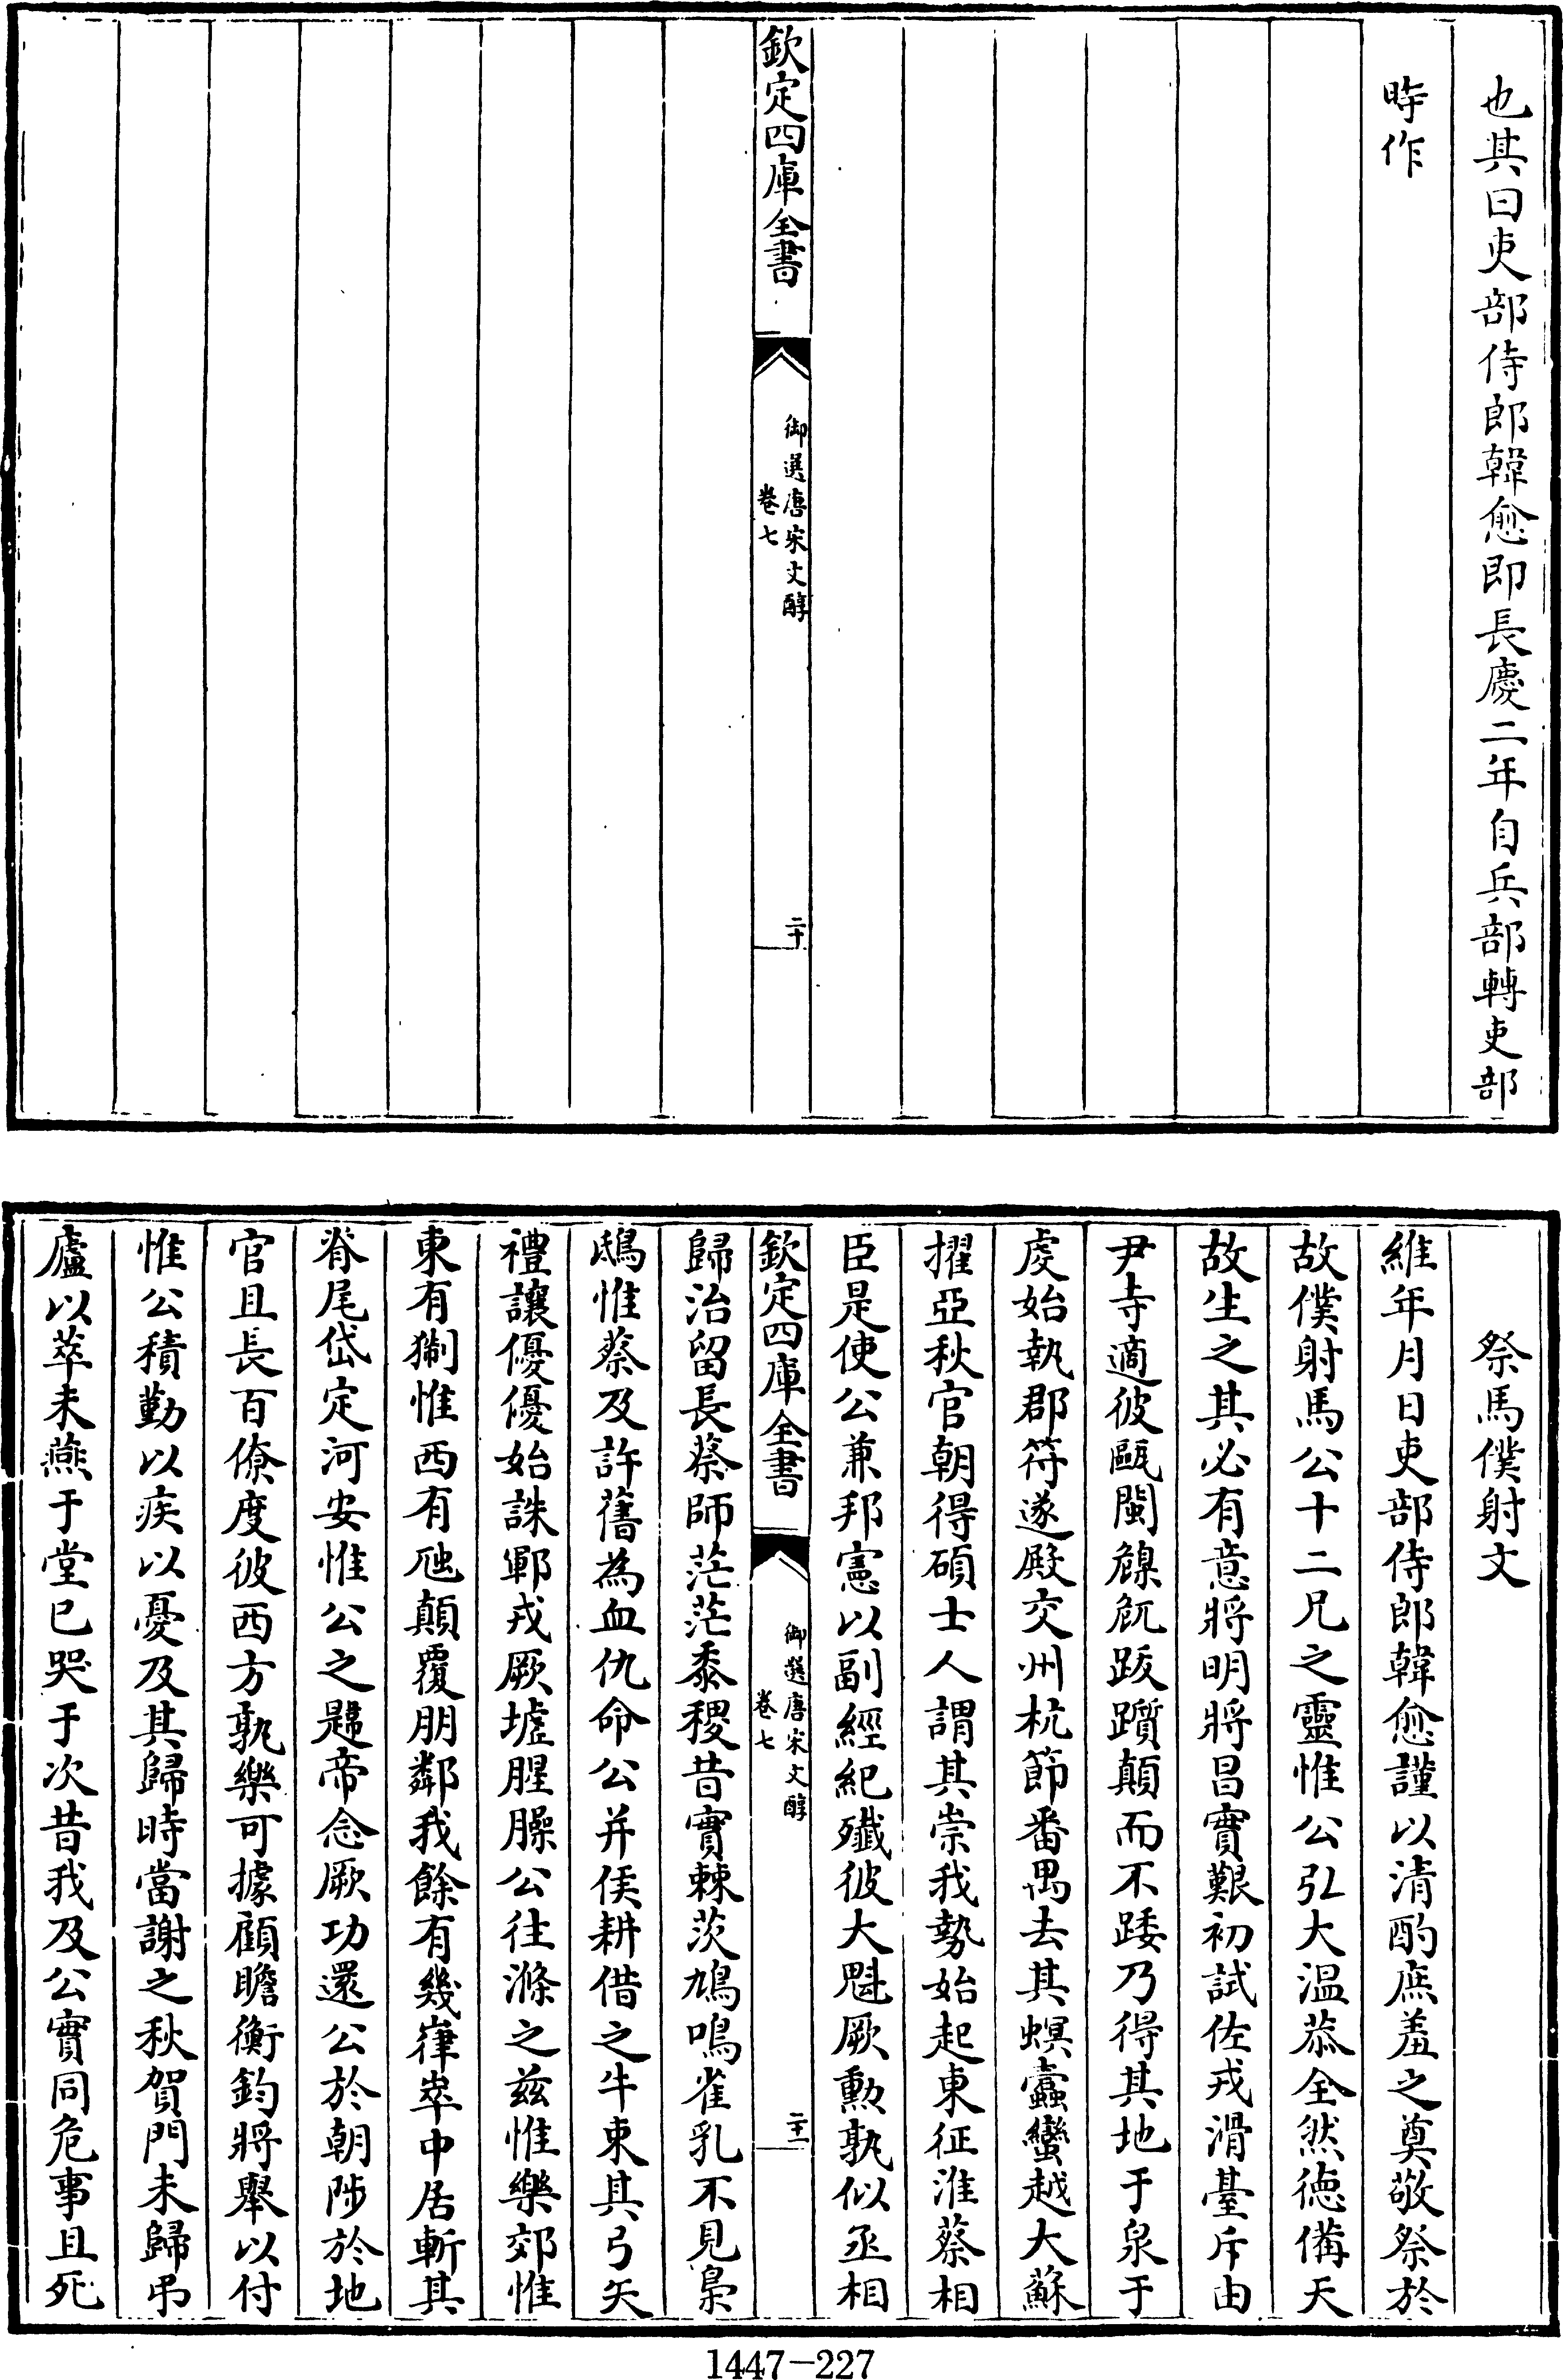 也其曰吏部侍郎韓愈即長慶二年自兵部轉吏部
時作
欽定四庫全書
御選唐宋文醇
卷七
二十
祭馬僕射文
維年月日吏部侍郎韓愈謹以清酌庶羞之奠敬祭於
故僕射馬公十二兄之靈惟公弘大温恭全然德備天
故生之其必有意將明將昌實艱初試佐戎滑臺斥由
尹寺適彼甌閩䫥屼跋躓顛而不踒乃得其地于泉于
䖍始執郡符遂殿交州杭節番禺去其螟蠹蠻越大蘇
擢亞秋官朝得碩士人謂其崇我勢始起東征淮蔡相
臣是使公兼邦憲以副經紀殲彼大魁厥勲孰似丞相
欽定四庫全書
御選唐宋文醇
卷七
二十一
歸治留長蔡師茫茫黍稷昔實棘茨鳩鳴雀乳不見梟
鴟惟蔡及許舊為血仇命公并侯耕借之牛束其弓矢
禮讓優優始誅鄆戎厥墟腥臊公往滌之兹惟樂郊惟
東有猘惟西有虺顛覆朋鄰我餘有幾嵂崒中居斬其
脊尾岱定河安惟公之韙帝念厥功還公於朝陟於地
官且長百僚度彼西方孰樂可據顧瞻衡鈞將舉以付
惟公積勤以疾以憂及其歸時當謝之秋賀門未歸弔
廬以萃未燕于堂已哭于次昔我及公實同危事且死
1447-227